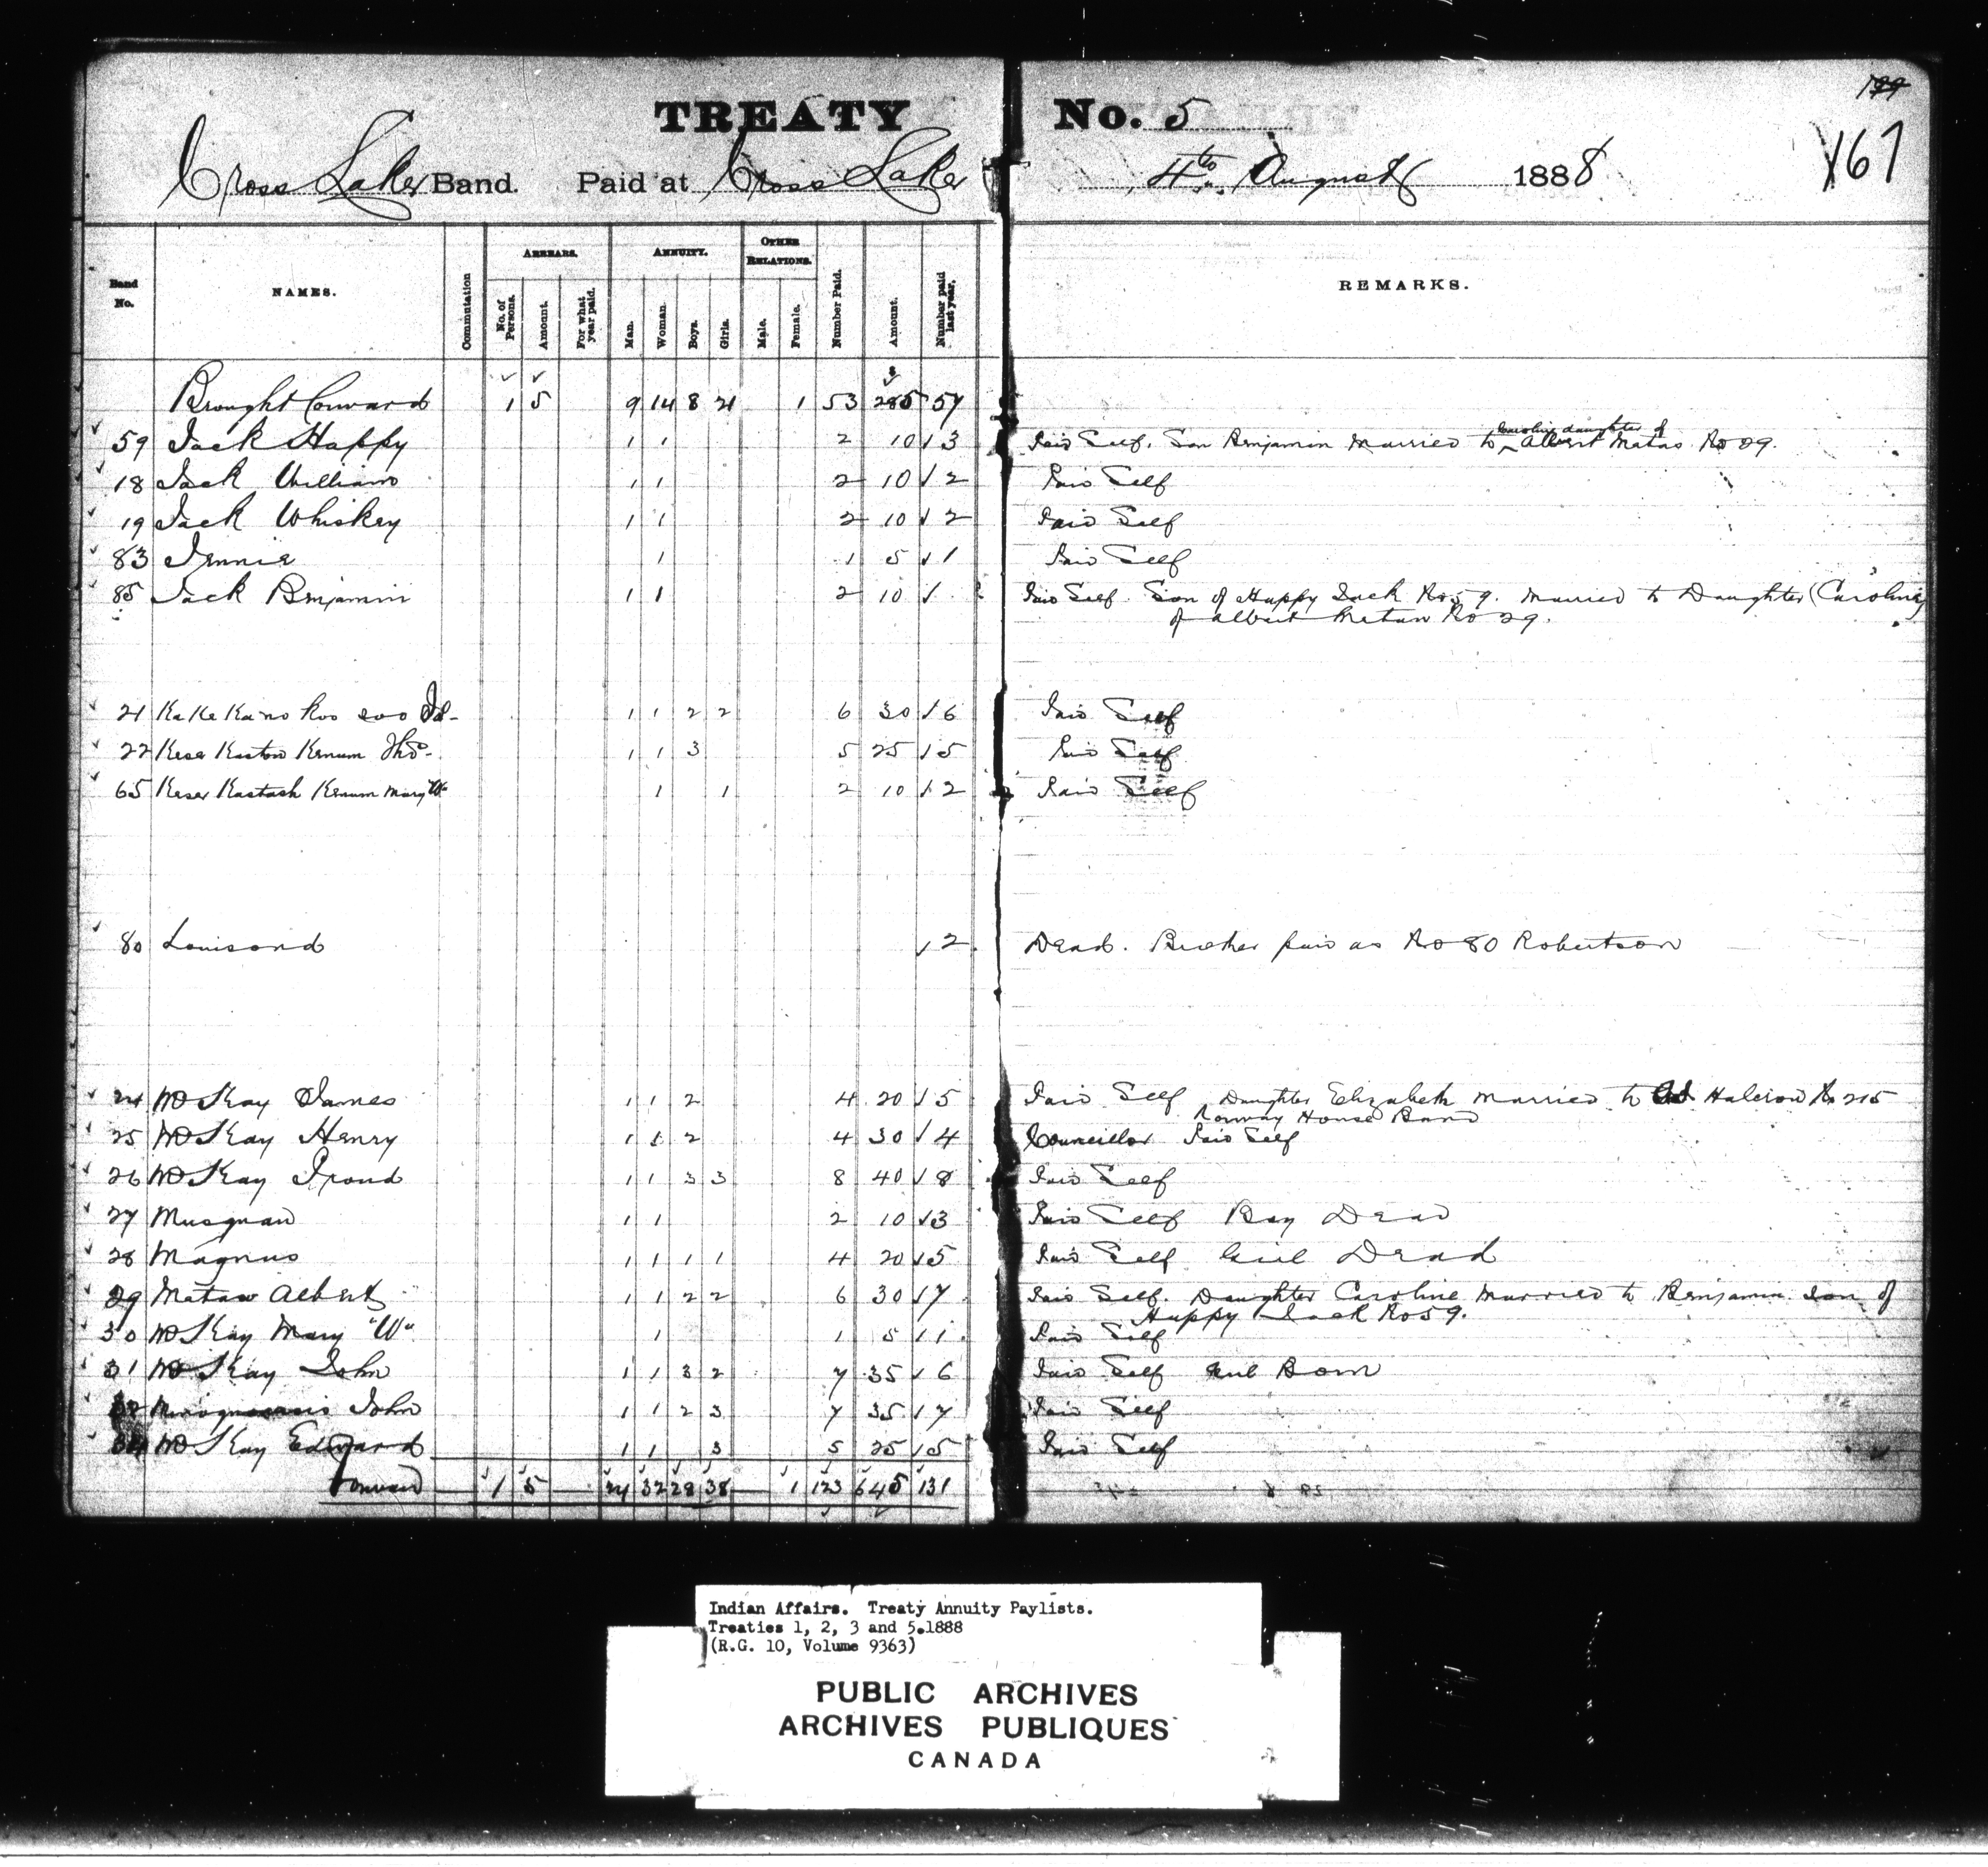 199
TREATY No. 5
167
Cross Lake Band. Paid at Cross Lake 4th August 1888
Band No.
NAMES.
Commutation
ARREARS.
No. of Persons.
Amount.
For what year paid.
ANNUITY.
Man.
Woman.
Boys.
Girls.
OTHER RELATIONS.
Male.
Female.
Number Paid.
Amount.
Number paid last year.
REMARKS.
Brought Forward 1 5 9 14 8 21 1 53 285 57
59 Jack Happy 1 1 2 10 3 Paid Self. Son Benjamin Married to Caroline daughter of Albert Matas No 29.
18 Jack William 1 1 2 10 2 Paid Self
19 Jack Whiskey 1 1 2 10 2 Paid Self
83 Jennie 1 1 5 1 Paid Self
85 Jack Benjamin 1 1 2 10 Paid Self. Son of Happy Jack No 59. Married to Daughter (Caroline)
of Albert Mataw No 29.
21 1 1 2 2 6 30 6 Paid Self
22 Kese Kastow Kenum Thos 1 1 3 5 25 5 Paid Self
65 Keser Kastash Kenum Mary W 1 1 2 10 2 Paid Self
80 Louisond 2 Dead. Brother paid as No 80 Robertson
24 McKay James 1 1 2 4 20 5 Paid Self Daughter Elizabeth Married to Halcrow No 215
Norway House Band
25 McKay Henry 1 1 2 4 30 4 Councillor Paid Self
26 McKay Proud 1 1 3 3 8 40 8 Paid Self
27 Musquaw 1 1 2 10 3 Paid Self Boy Dead
28 Magnus 1 1 1 1 4 20 5 Paid Self Girl Dead
29 Mataw Albert 1 1 2 2 6 30 7 Paid Self. Daughter Caroline Married to Benjamin son of
Happy Jack No 59.
30 McKay Mary "W" 1 1 5 1 Paid Self
31 McKay John 1 1 3 2 7 35 6 Paid Self Girl Born
32 John 1 1 2 3 7 35 7 Paid Self
34 McKay Edward 1 1 3 5 25 5 Paid Self
Forward 1 5 24 32 28 38 1 123 645 131
Indian Affairs. Treaty Annuity Paylists.
Treaties 1, 2, 3 and 5.1888
(R.G. 10, Volume 9363)
PUBLIC ARCHIVES
ARCHIVES PUBLIQUES
CANADA